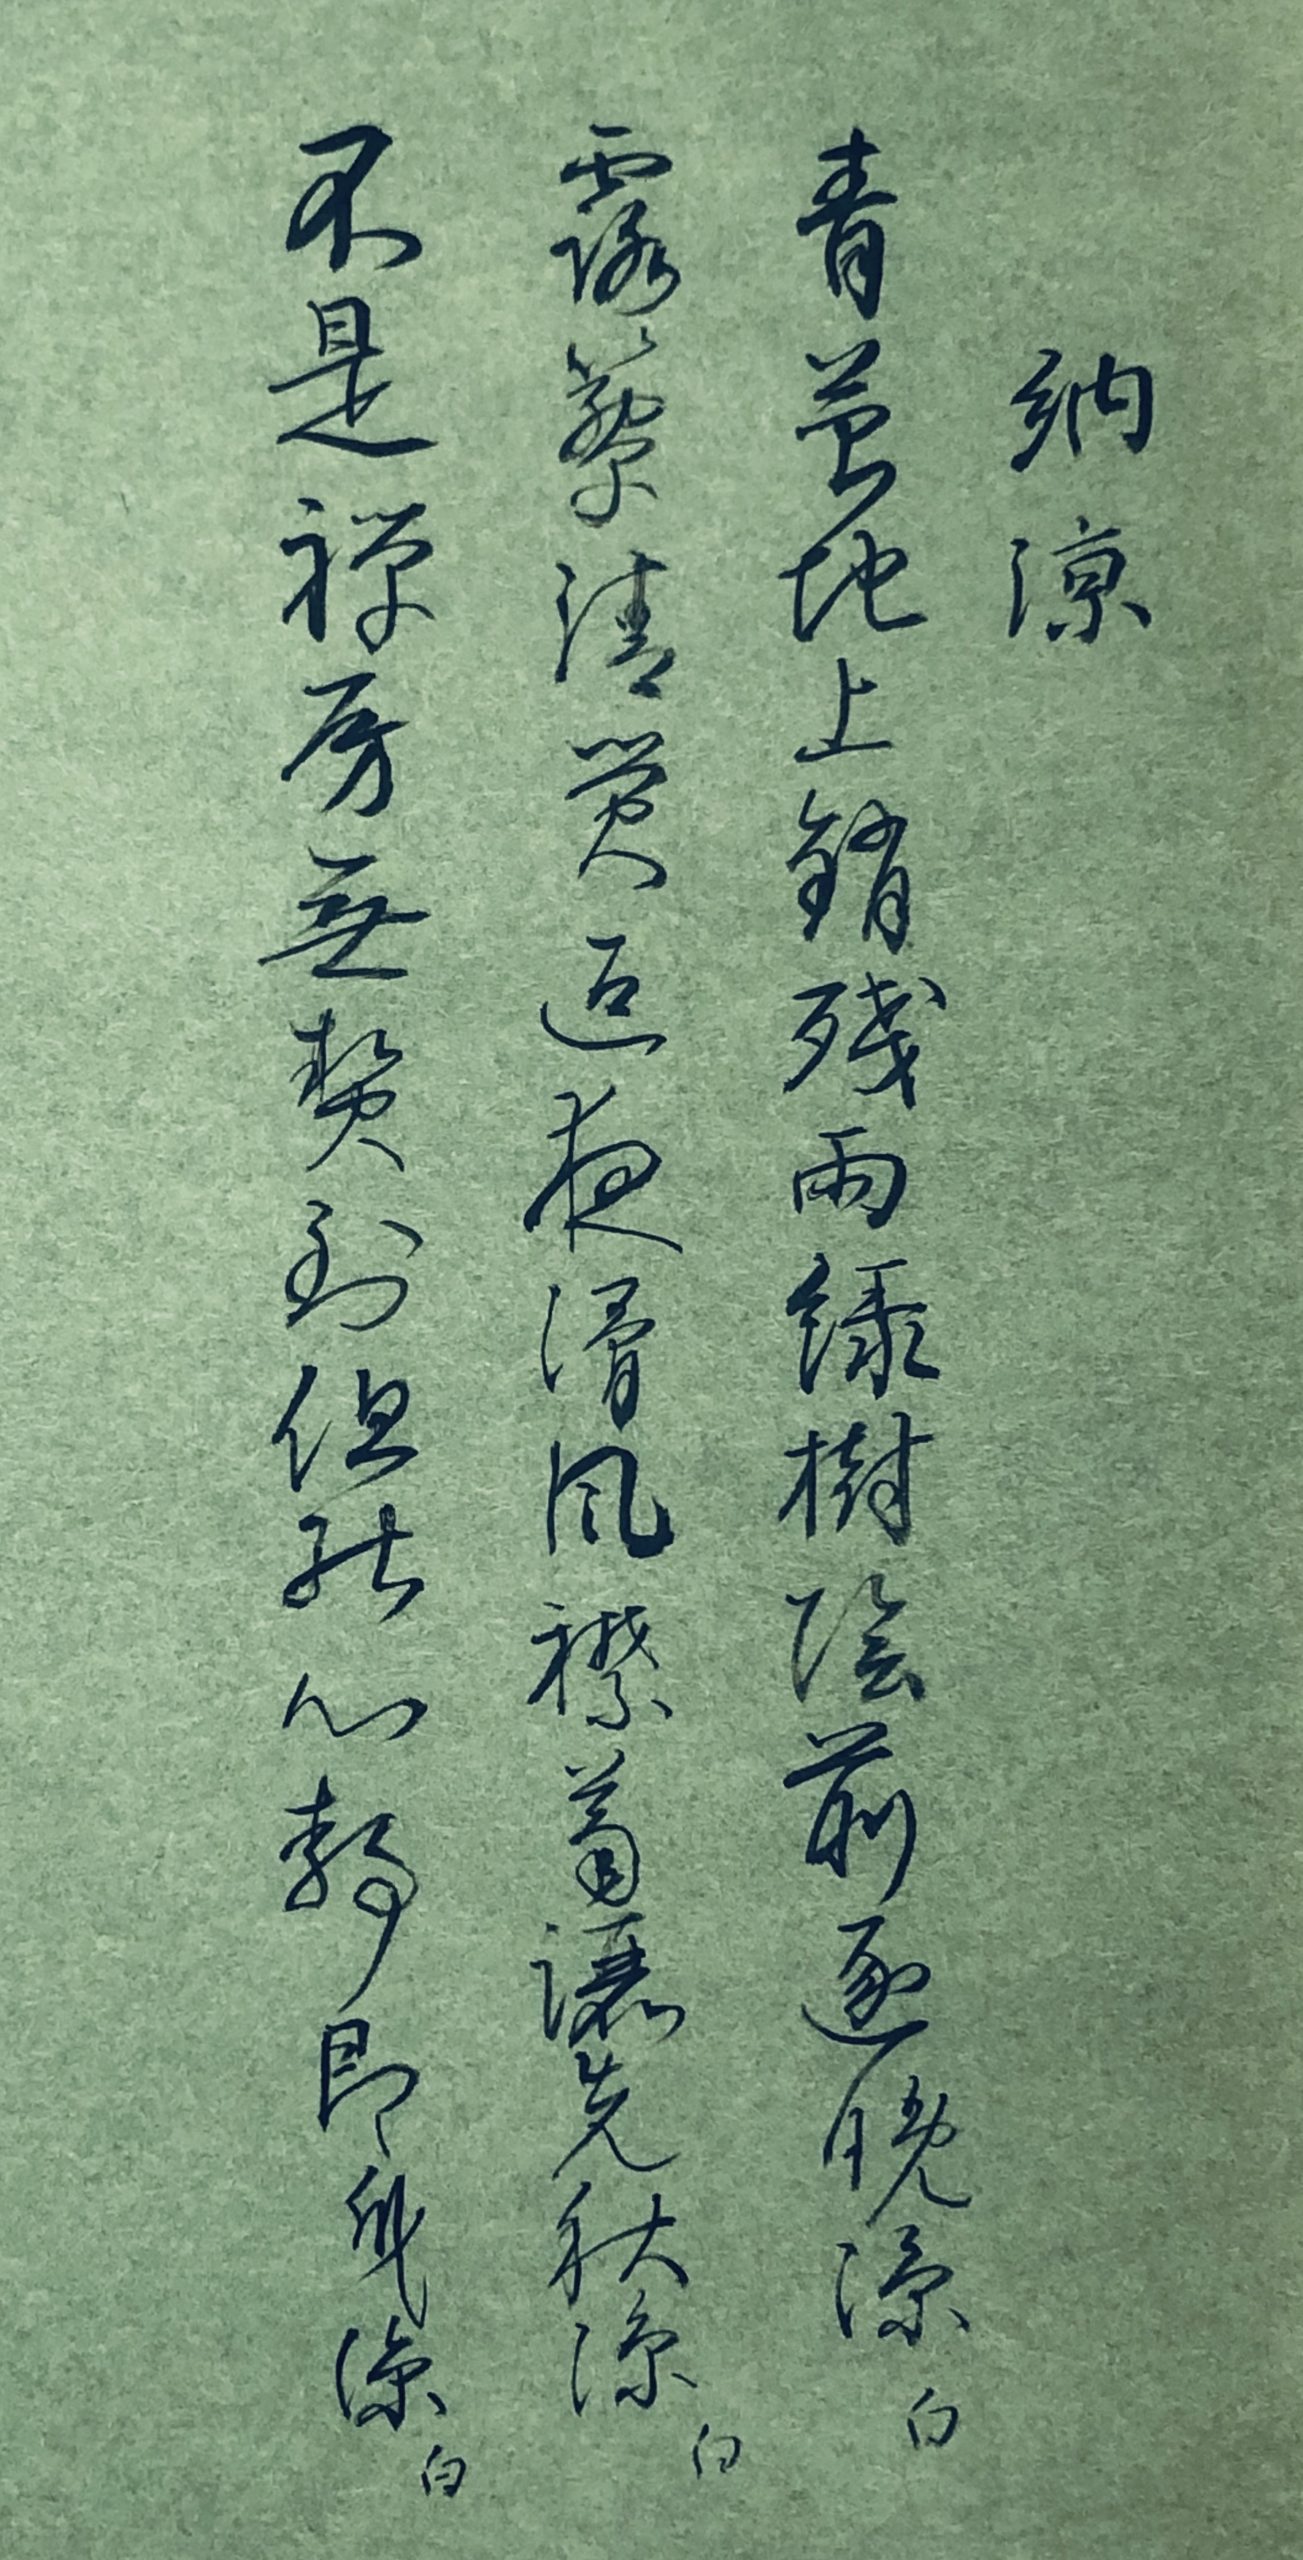 納涼
青苔地上銷残雨緑樹陰前逐晩涼 白
露簟清瑩迎夜滑風襟蕭灑先秋涼 白
不是禅房無熱到但能心静即身涼 白